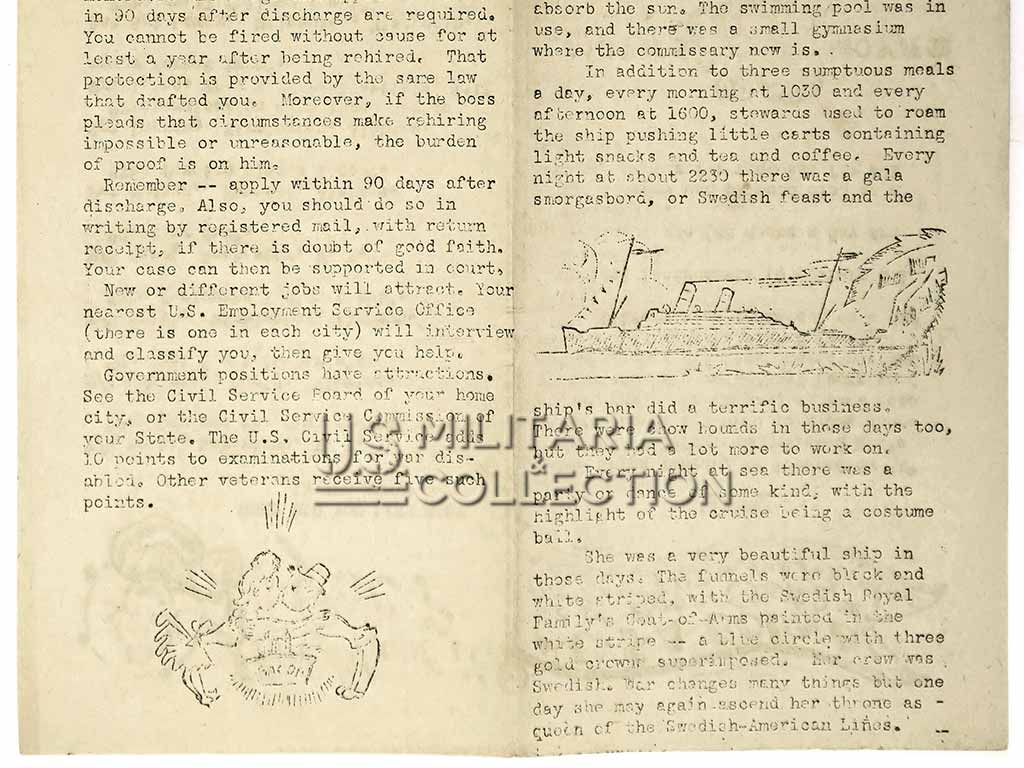 in 90 days after discharge are required.
You cannot be fired without cause for at
least a year after being rehired. That
protection is provided by the same law
that drafted you. Moreover, if the boss
pleads that circumstances make rehiring
impossible or unreasonable, the burden
of proof is on him.
Remember -- apply within 90 days after
discharge. Also, you should do so in
writing by registered mail, with return
receipt, if there is doubt of good faith.
Your case can then be supported in court.
New or different jobs will attract. Your
nearest U.S. Employment Service Office
(there is one in each city) will interview
and classify you, then give you help.
Government positions have attractions.
See the Civil Service Board of your home
city, or the Civil Service Commission of
your State. The U.S. Civil Service adds
10 points to examinations for war dis-
abled. Other veterans receive five such
points.
absorb the sun. The swimming pool was in
use, and there was a small gymnasium
where the commissary now is.
In addition to three sumptuous meals
a day, every morning at 1030 and every
afternoon at 1600, stewards used to roam
the ship pushing little carts containing
light snacks and tea and coffee. Every
night at about 2230 there was a gala
smorgasbord, or Swedish feast and the
ship's bar did a terrific business.
There were chow hounds in those days too,
but they had a lot more to work on.
Every night at sea there was a
party or dance of some kind, with the
highlight of the cruise being a costume
ball.
She was a very beautiful ship in
those days. The funnels were black and
white striped, with the Swedish Royal
Family's Coat-of-Arms painted in the
white stripe -- a blue circle with three
gold crowns superimposed. Her crew was
Swedish. War changes many things but one
day she may again ascend her throne as -
queen of the Swedish-American Lines. --
US MILITARIA
& COLLECTION